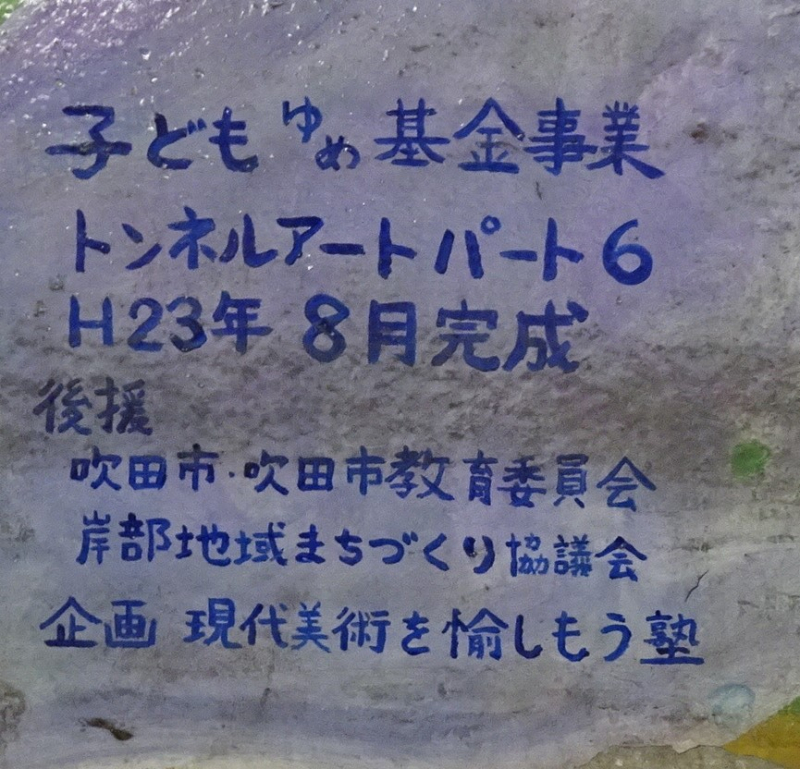 子どもゆめ基金事業
トンネルアートパート6
H23年 8月完成
後援
吹田市・吹田市教育委員会
岸部地域まちづくり協議会
企画 現代美術を愉しもう塾